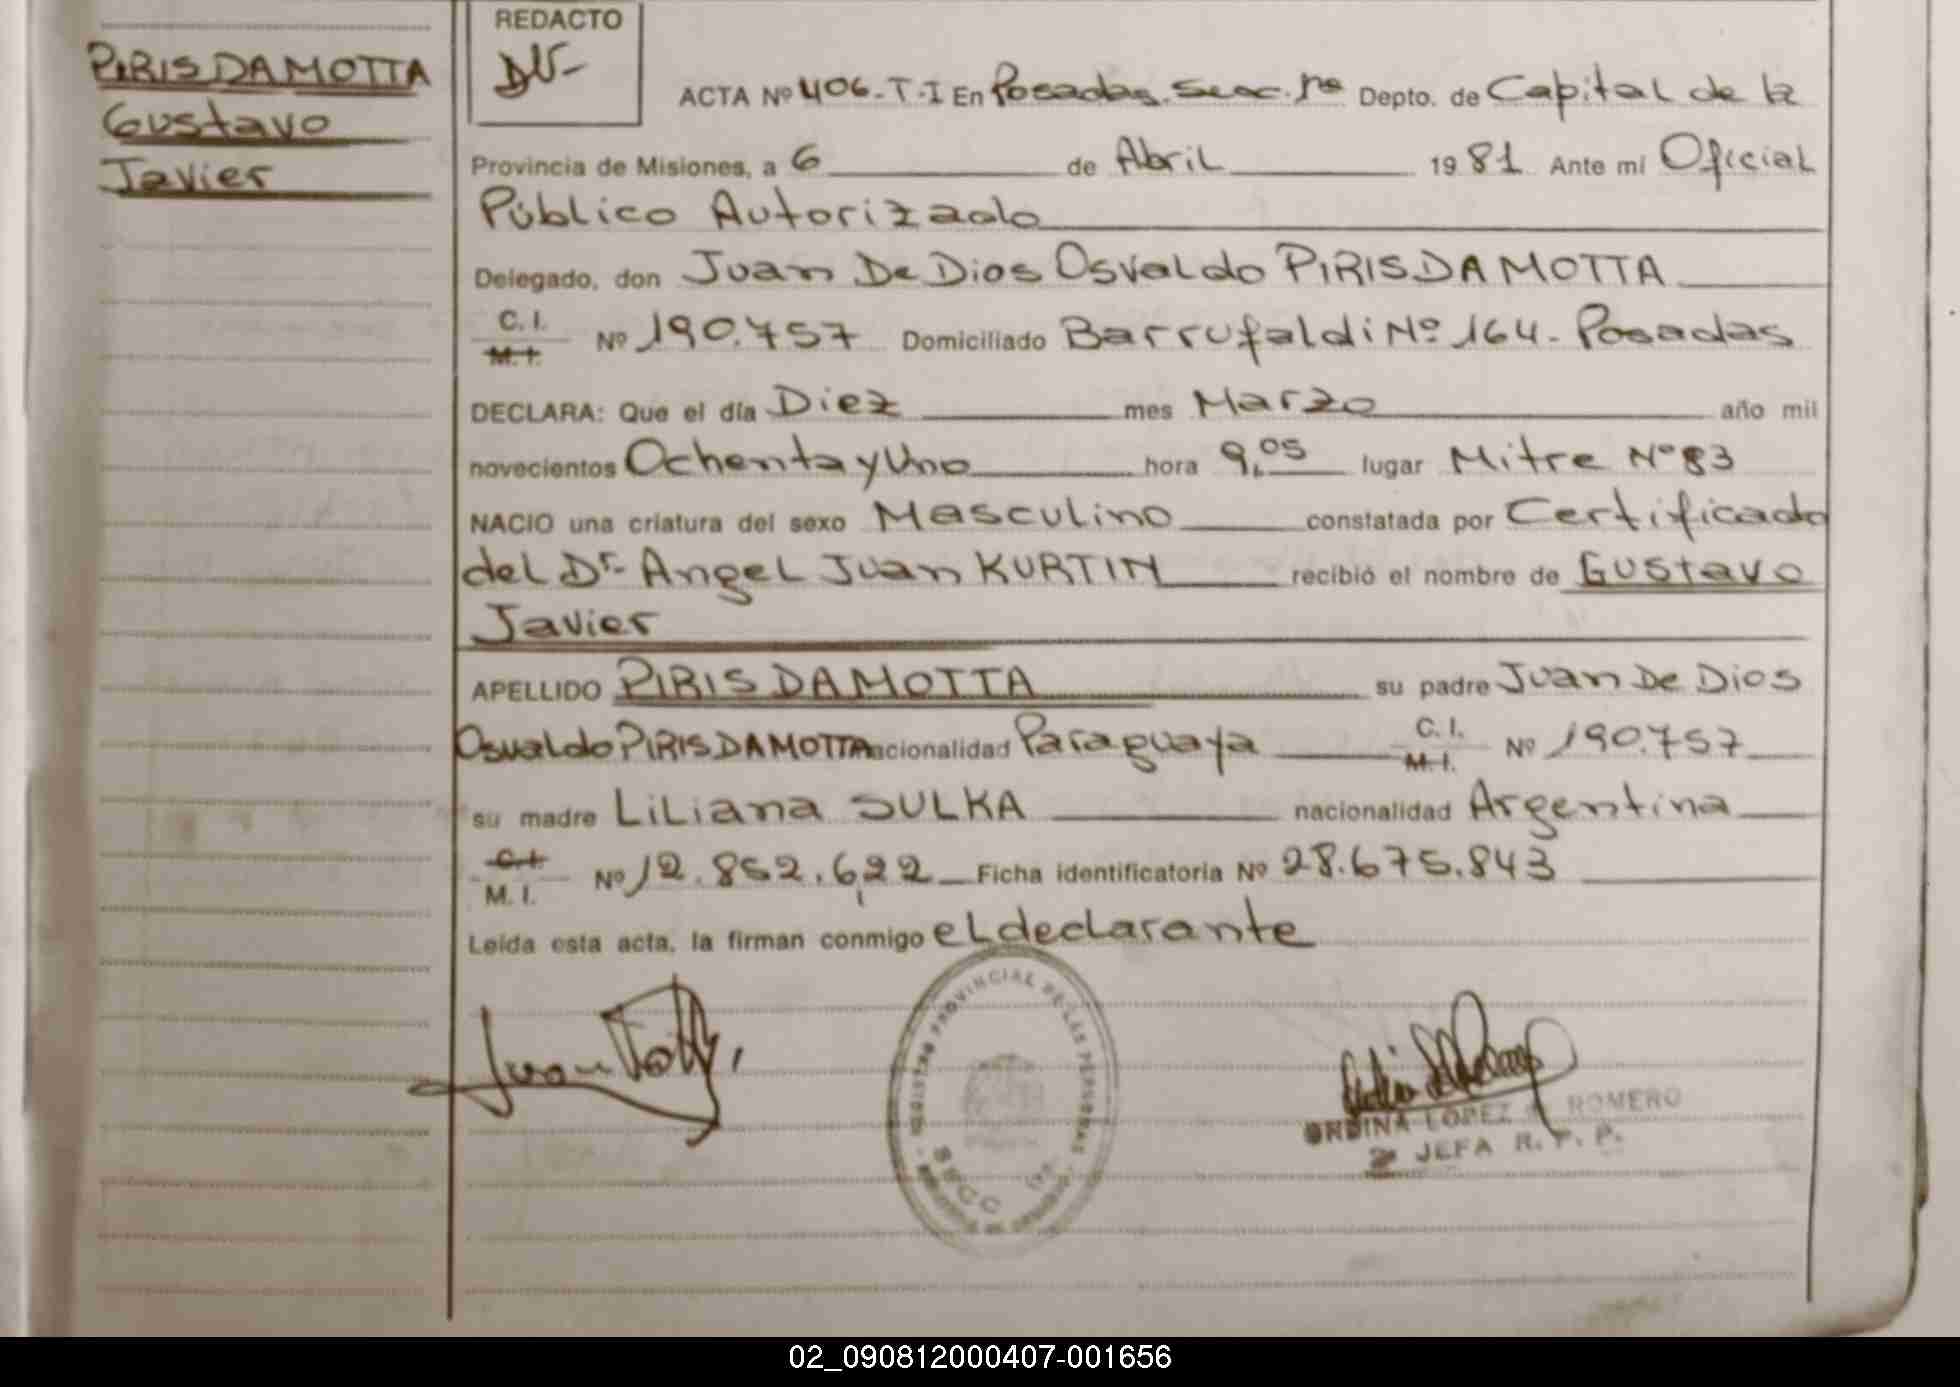 PIRIS DA MOTTA
Gustavo
Javier
REDACTO
ACTA Nº 406-T-I En Posadas. Secc. 1ª Depto. de Capital de la
Provincia de Misiones, a 6 de Abril 1981 Ante mí Oficial
Público Autorizado
Delegado, don Juan De Dios Osvaldo PIRIS DA MOTTA
C. I.
M. I. Nº 190.757 Domiciliado Barrufaldi Nº 164 - Posadas
DECLARA: Que el día Diez mes Marzo año mil
novecientos Ochenta y Uno hora 9,05 lugar Mitre Nº 83
NACIO una criatura del sexo Masculino constatada por Certificado
del Dr. Angel Juan KURTIN recibió el nombre de Gustavo
Javier
APELLIDO PIRIS DA MOTTA su padre Juan De Dios
Osvaldo PIRIS DA MOTTA nacionalidad Paraguaya C. I. M. I. Nº 190.757
su madre Liliana SULKA nacionalidad Argentina
C. I.
M. I. Nº 12.852.622 Ficha identificatoria Nº 28.675.843
Leída esta acta, la firman conmigo el declarante
REGISTRO PROVINCIAL DE LAS PERSONAS
SECC
LOPEZ ROMERO
JEFA R. P. P.
02_090812000407-001656